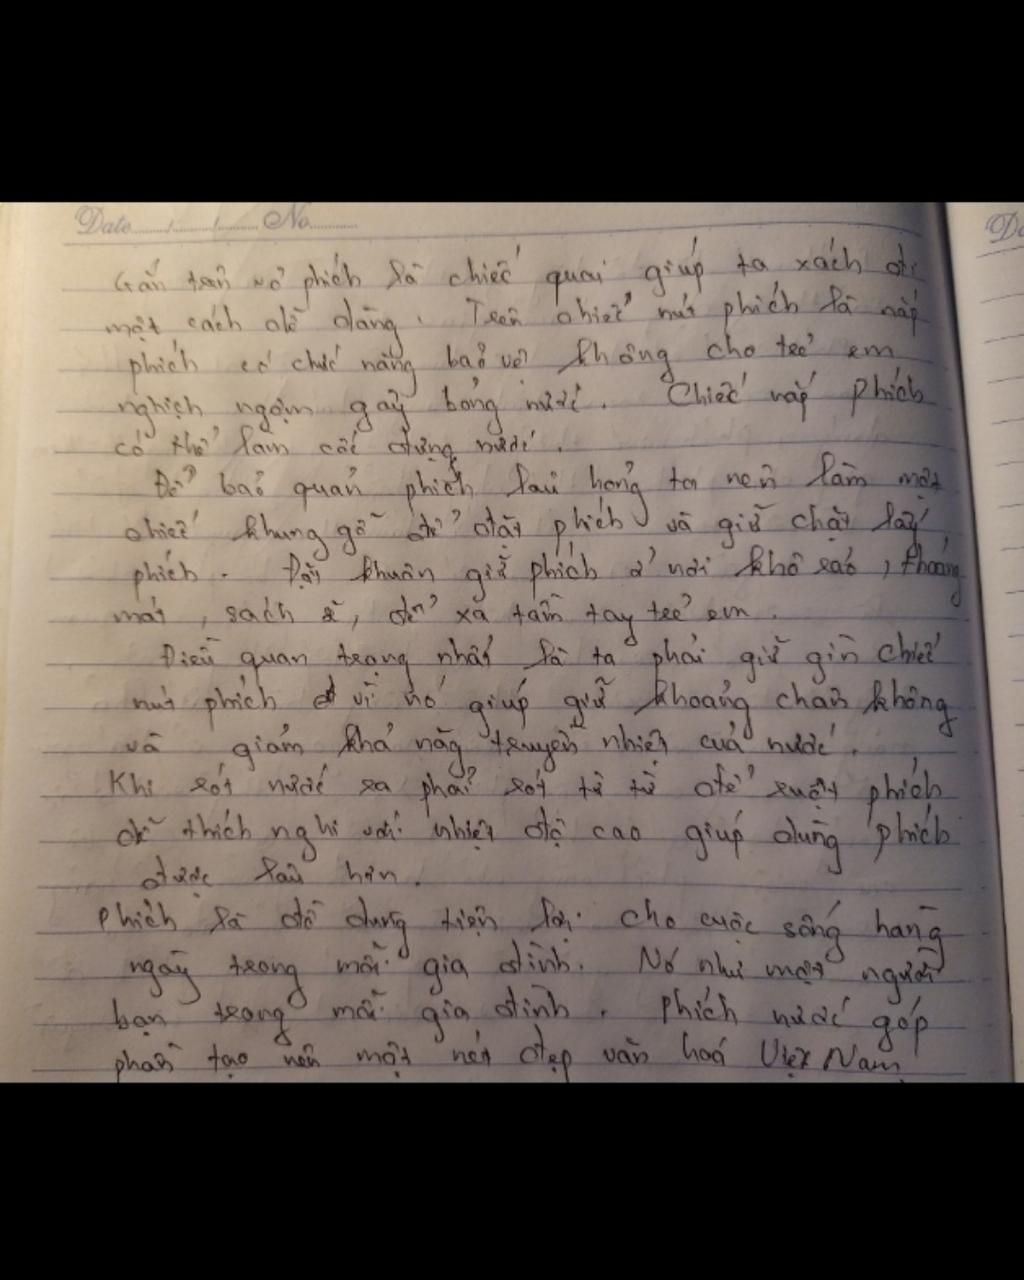 Date No
Gắn trên vỏ phích là chiếc quai giúp ta xách đi
một cách dễ dàng. Trên chiếc nút phích là nắp
phích có chức năng bảo vệ không cho trẻ em
nghịch ngợm gây bỏng nước. Chiếc nắp phích
có thể làm cốc đựng nước.
Để bảo quản phích lâu hỏng ta nên làm một
chiếc khung gỗ để đặt phích và giữ chặt lấy
phích. Đặt khuôn giữ phích ở nơi khô ráo, thoáng
mát, sạch sẽ, để xa tầm tay trẻ em.
Điều quan trọng nhất là ta phải giữ gìn chiếc
nút phích vì nó giúp giữ khoảng chân không
và giảm khả năng truyền nhiệt của nước.
Khi rót nước ra phải rót từ từ để ruột phích
dễ thích nghi với nhiệt độ cao giúp dùng phích
được lâu hơn.
Phích là đồ dùng tiện lợi cho cuộc sống hàng
ngày trong mỗi gia đình. Nó như một người
bạn trong mỗi gia đình. Phích nước góp
phần tạo nên một nét đẹp văn hoá Việt Nam.